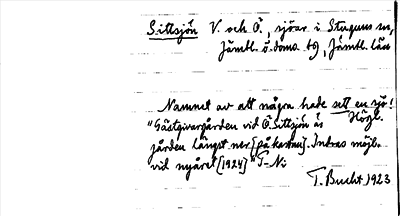 Sittsjön V. och Ö., sjöar i Stuguns sn,
Jämtl. ö. doms. tg, Jämtl. län
Namnet av att några hade sett en sjö!
"Gästgivargården vid Ö. Sittsjön är Högl.
gården längst ner [på kartan]. Indras möjl.
vid nyåret [1924]" T–N:
T. Bucht 1923